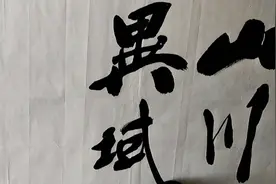 山川
異域